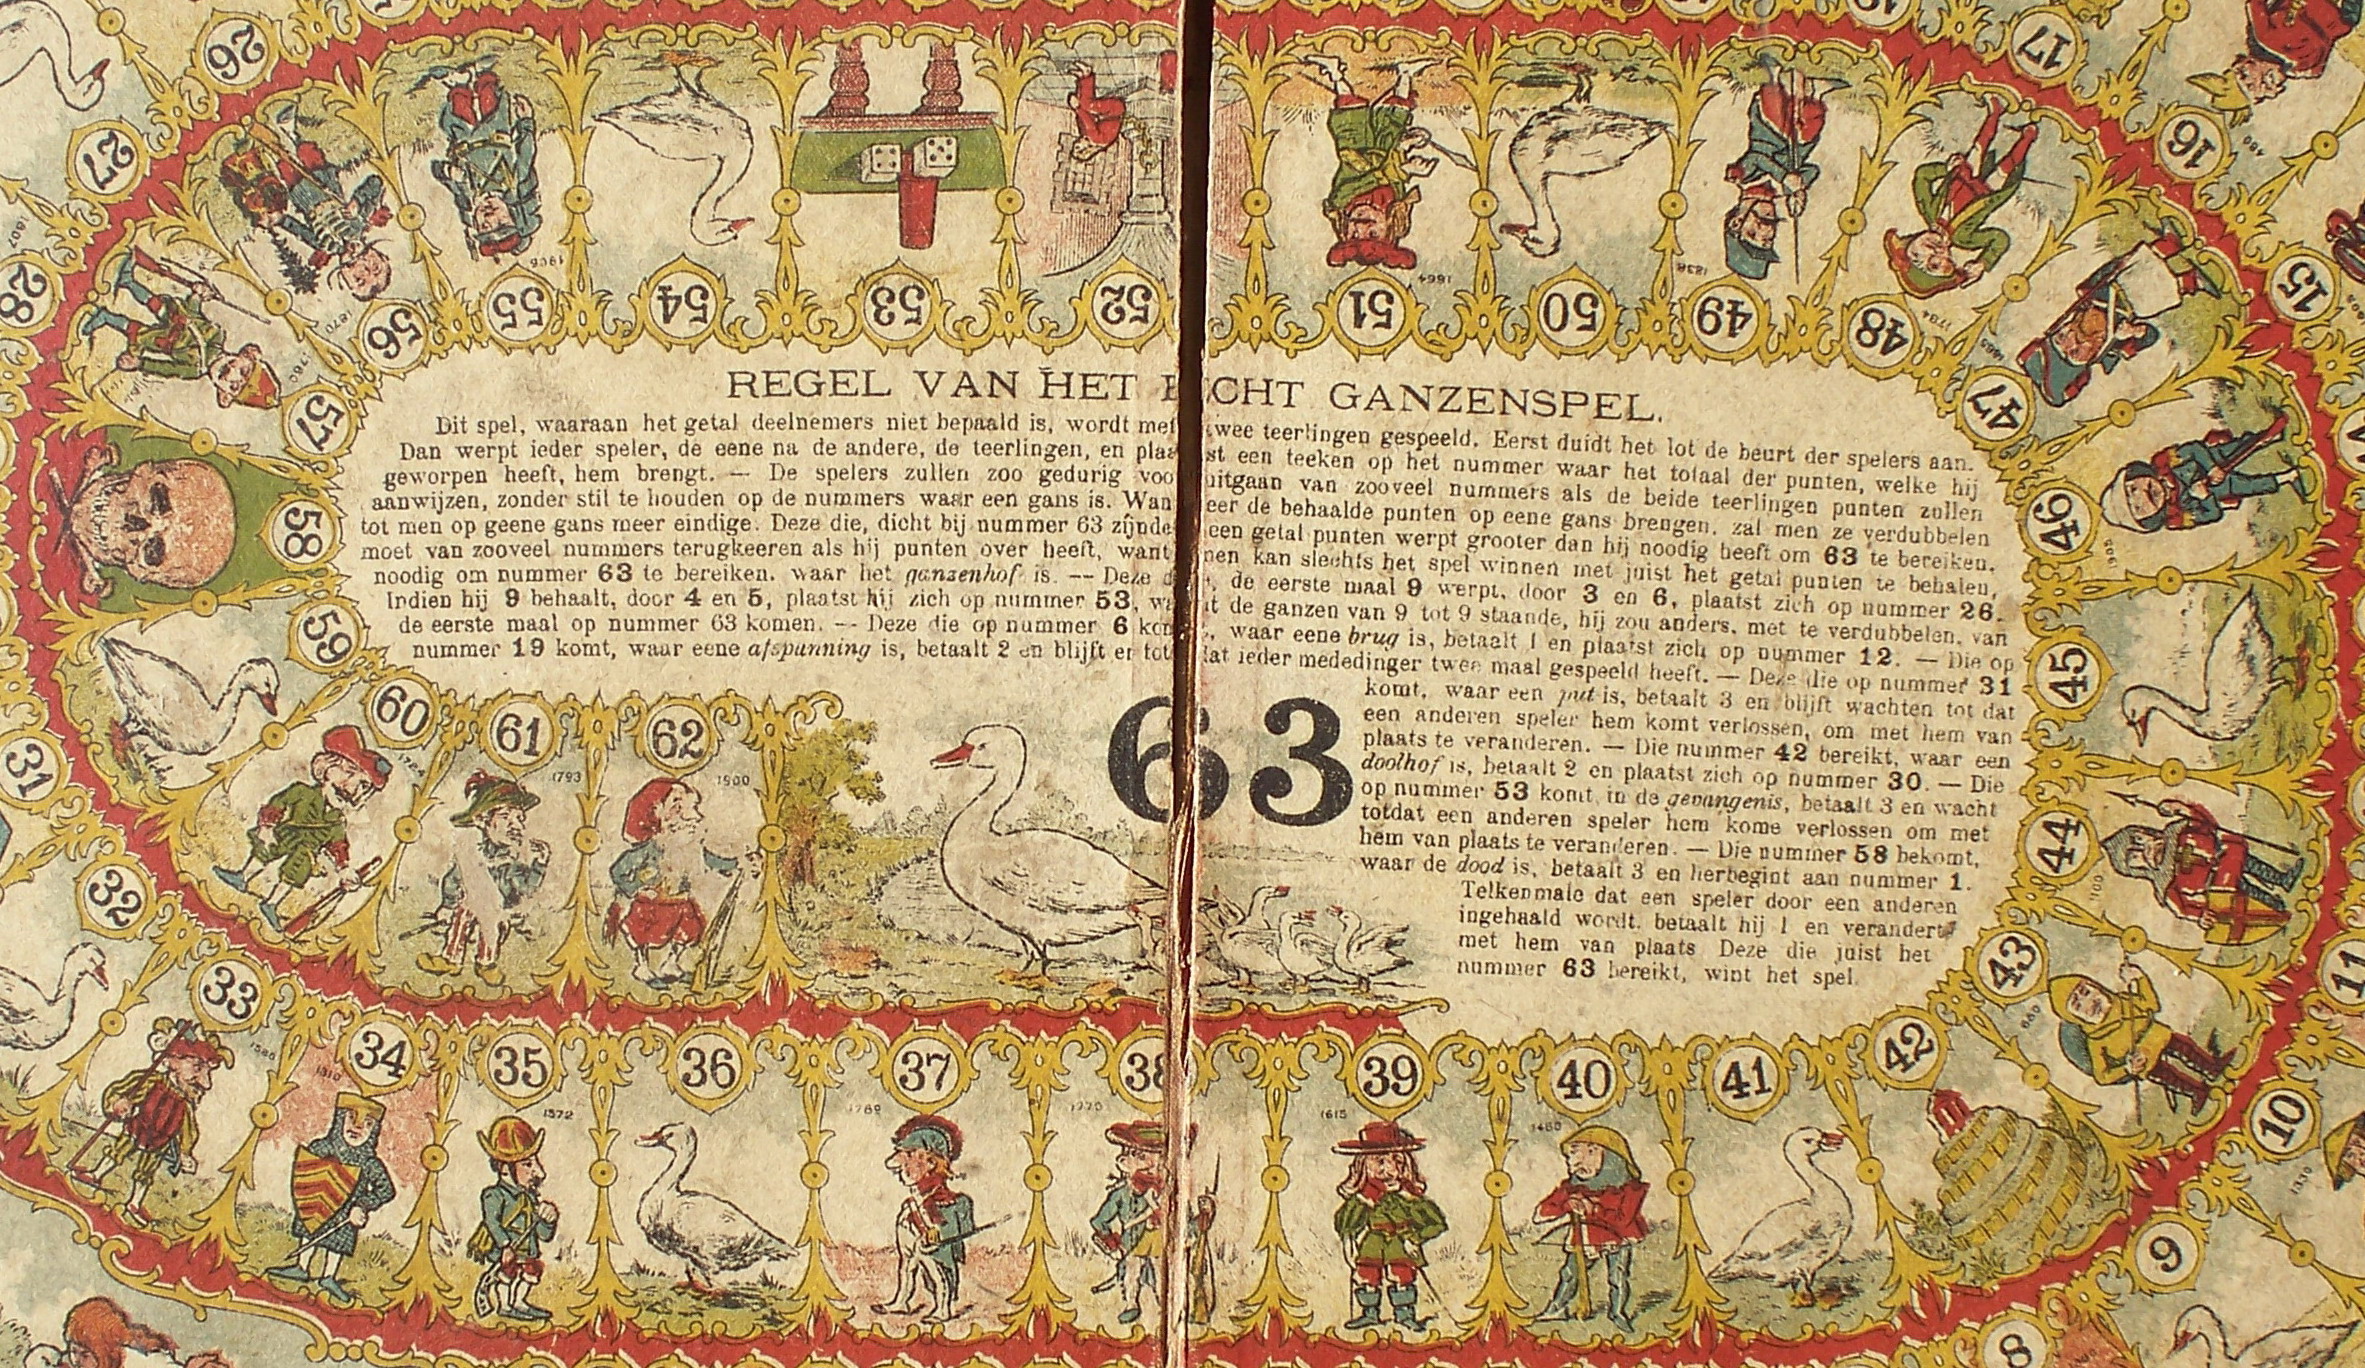 REGEL VAN HET ECHT GANZENSPEL.
Dit spel, waaraan het getal deelnemers niet bepaald is, wordt met twee teerlingen gespeeld. Eerst duidt het lot de beurt der spelers aan.
Dan werpt ieder speler, de eene na de andere, de teerlingen, en plaatst een teeken op het nummer waar het totaal der punten, welke hij
geworpen heeft, hem brengt. — De spelers zullen zoo gedurig vooruitgaan van zooveel nummers als de beide teerlingen punten zullen
aanwijzen, zonder stil te houden op de nummers waar een gans is. Wanneer de behaalde punten op eene gans brengen, zal men ze verdubbelen
tot men op geene gans meer eindige. Deze die, dicht bij nummer 63 zijnde een getal punten werpt grooter dan hij noodig heeft om 63 te bereiken,
moet van zooveel nummers terugkeeren als hij punten over heeft, want men kan slechts het spel winnen met juist het getal punten te behalen,
noodig om nummer 63 te bereiken, waar het ganzenhof is. — Deze die, de eerste maal 9 werpt, door 3 en 6, plaatst zich op nummer 26.
Indien hij 9 behaalt, door 4 en 5, plaatst hij zich op nummer 53, want de ganzen van 9 tot 9 staande, hij zou anders, met te verdubbelen, van
de eerste maal op nummer 63 komen. — Deze die op nummer 6 komt, waar eene brug is, betaalt 1 en plaatst zich op nummer 12. — Die op
nummer 19 komt, waar eene afspanning is, betaalt 2 en blijft er tot dat ieder mededinger twee maal gespeeld heeft. — Deze die op nummer 31
komt, waar een put is, betaalt 3 en blijft wachten tot dat
een anderen speler hem komt verlossen, om met hem van
plaats te veranderen. — Die nummer 42 bereikt, waar een
doolhof is, betaalt 2 en plaatst zich op nummer 30. — Die
op nummer 53 komt, in de gevangenis, betaalt 3 en wacht
totdat een anderen speler hem kome verlossen om met
hem van plaats te veranderen. — Die nummer 58 bekomt,
waar de dood is, betaalt 3 en herbegint aan nummer 1.
Telkenmale dat een speler door een anderen
ingehaald wordt, betaalt hij 1 en verandert
met hem van plaats Deze die juist het
nummer 63 bereikt, wint het spel.
63
8
9
10
11
15
16
17
26
27
28
31
32
33
1580
34
1310
35
1572
36
37
1789
38
1775
39
1615
40
1480
41
42
43
44
45
46
47
48
1794
49
50
51
1664
52
53
54
55
56
1870
57
58
59
60
1794
61
1793
62
1900
1807